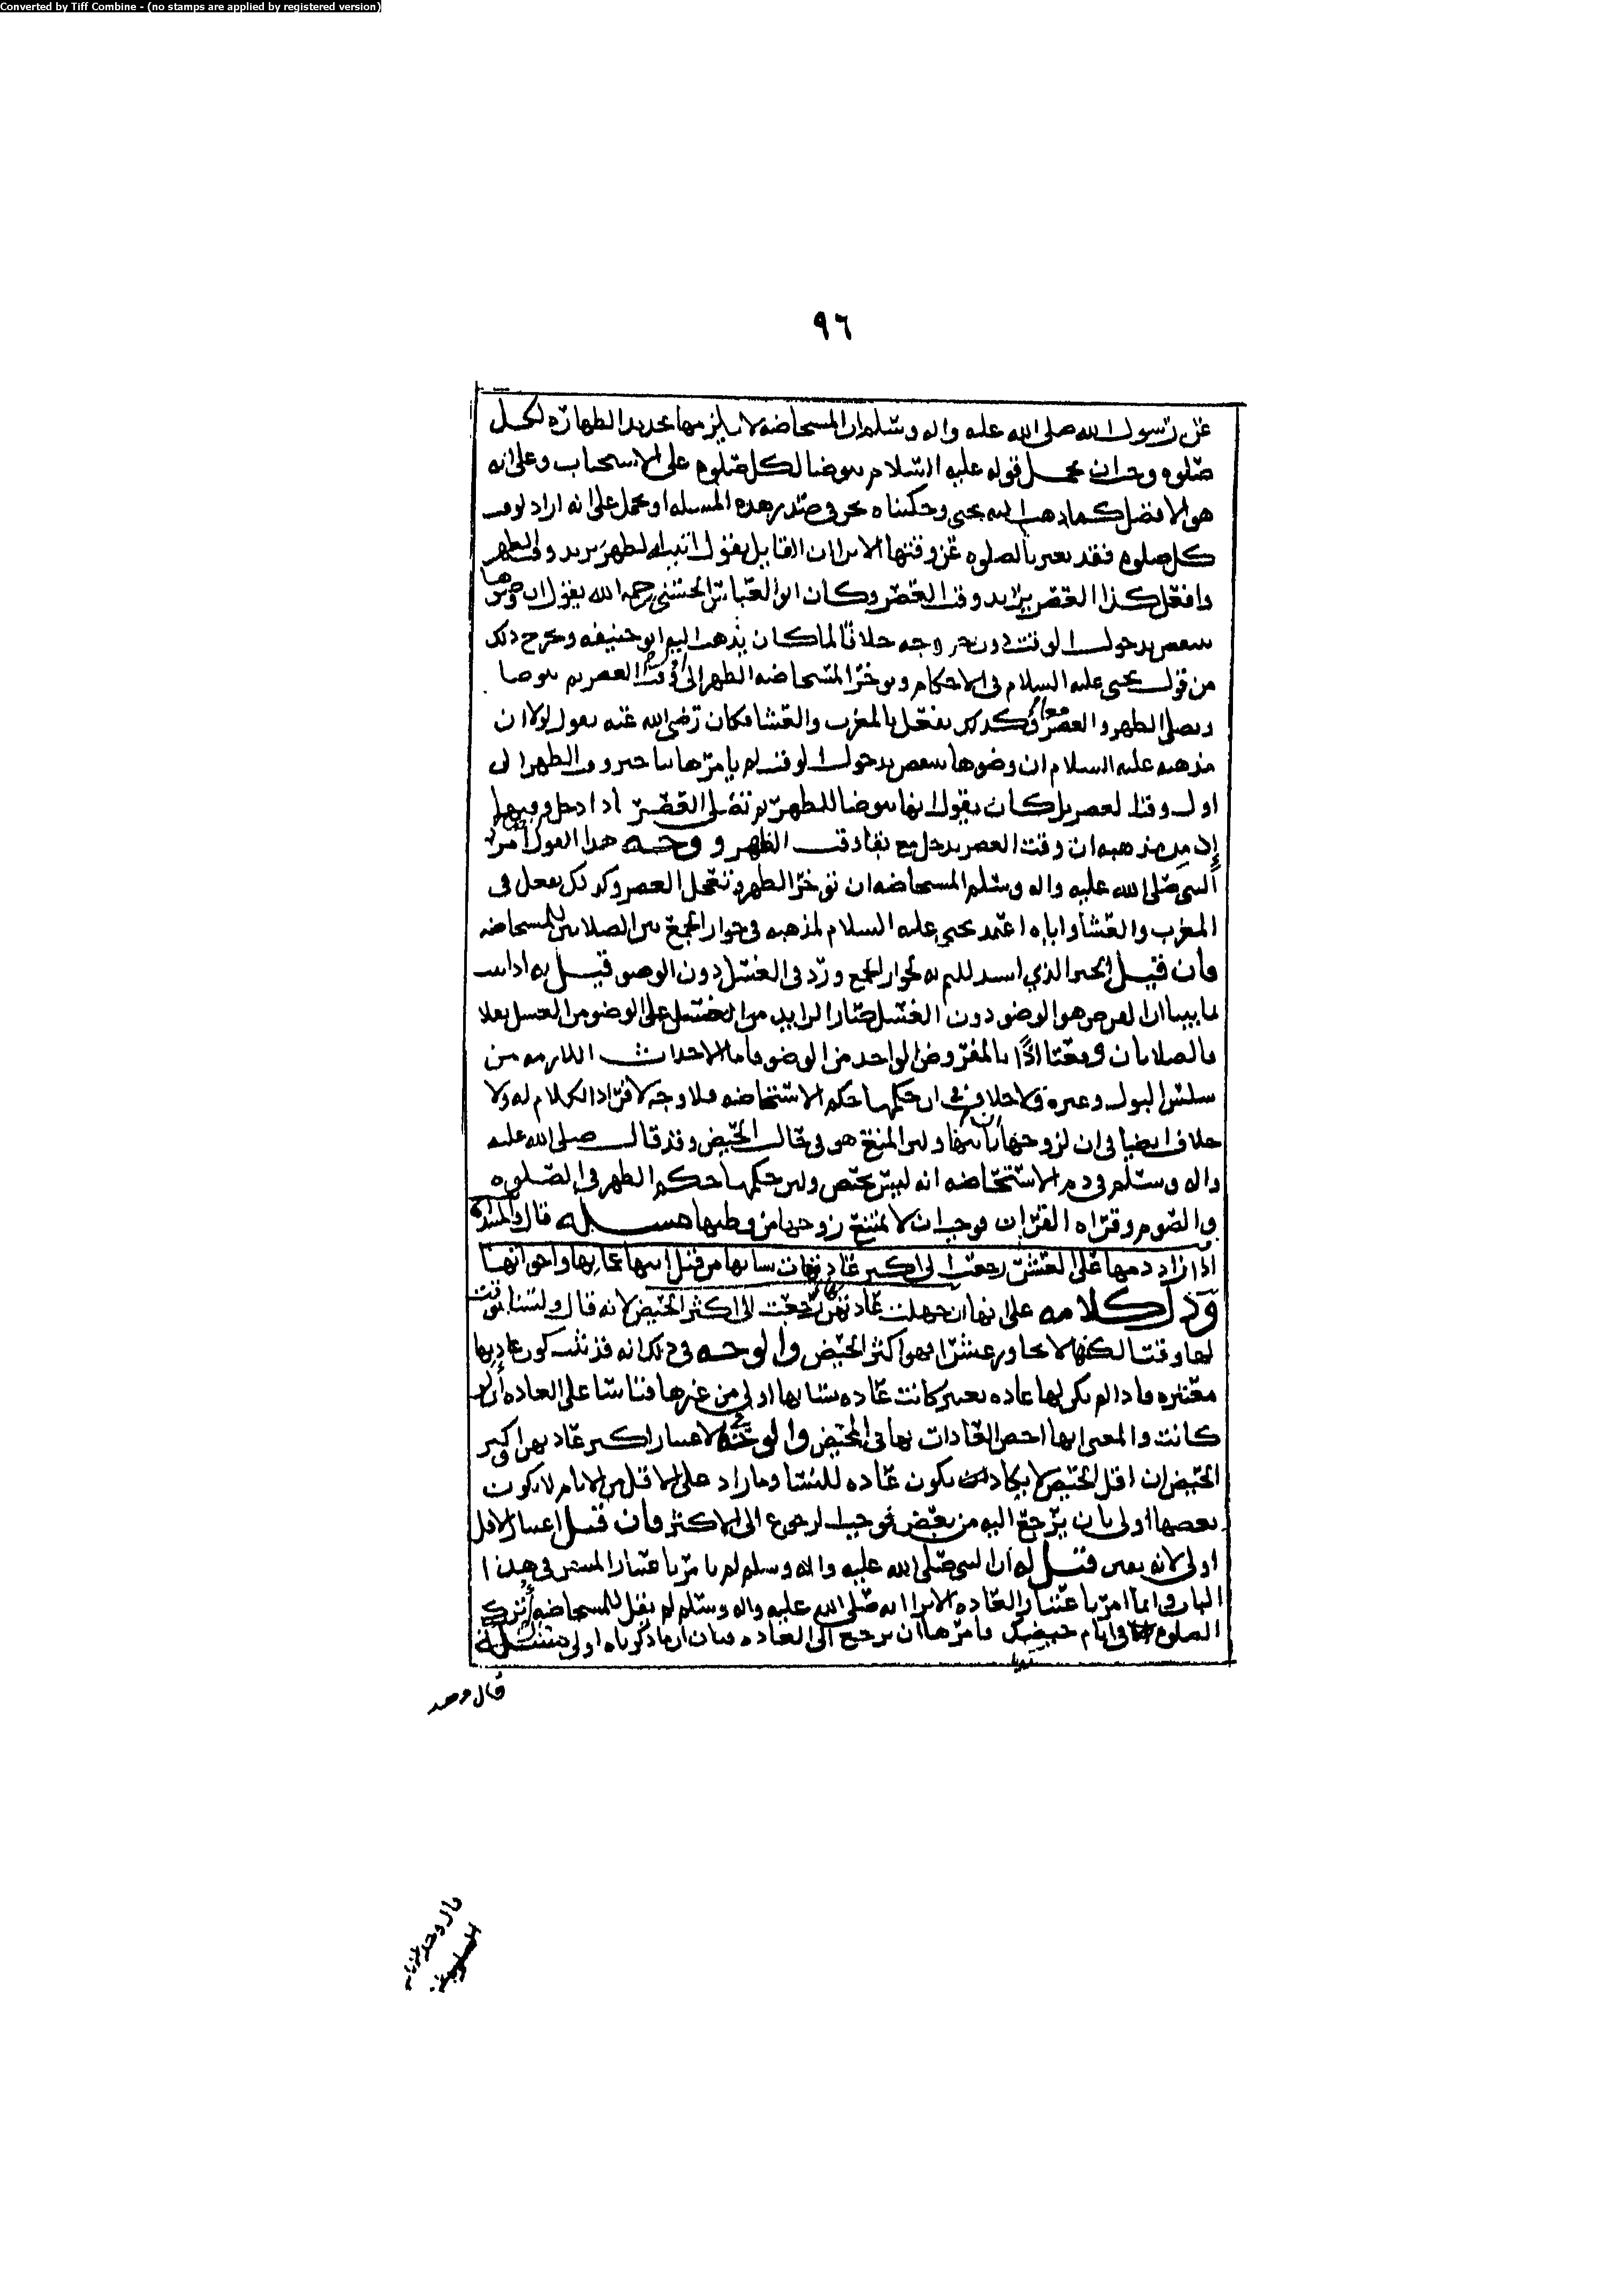 Converted by Tiff Combine - (no stamps are applied by registered version)
٩٦
عن رسول الله صلى الله عليه واله وسلم ان المستحاضه لا يلزمها تجديد الطهاره لكل
صلوه وجب ان يحمل قوله عليه السلام يتوضا لكل صلوه على الاستحباب وعلى انه
هو الافضل كما ذهب اليه يحيى وحكيناه نحن في صدر هذه المسله او يحمل على انه اراد لوقت
كل صلوه فقد يعبر بالصلوه عن وقتها الا ترا ان القايل يقول اتيك الظهر يريد وقت الظهر
وافعل كذا العصر يريد وقت العصر وكان ابو العباس الحسني رحمه الله يقول ان وضوها
ينتقض بدخول الوقت دون خروجه خلافا لما كان يذهب اليه ابو حنيفه وخرج ذلك
من قول يحيى عليه السلام في الاحكام وتوخر المستحاضه الظهر الى اول وقت العصر ثم تتوضا
وتصلي الظهر والعصر معا وكذلك تفعل بالمغرب والعشا فكان رضي الله عنه يقول لولا ان
مذهبه عليه السلام ان وضوها ينتقض بدخول الوقت لم يامرها بتاخير وقت الظهر الى
اول وقت العصر بل كان يقول انها تتوضا للظهر ثم تصلي العصر اذا دخل وقتها
اذ من مذهبه ان وقت العصر يدخل مع بقا وقت الظهر ووجه هذا القول امر
النبي صلى الله عليه واله وسلم المستحاضه ان توخر الظهر وتعجل العصر وكذلك تفعل في
المغرب والعشا واياه اعتمد يحيى عليه السلام لمذهبه في جواز الجمع بين الصلاتين للمستحاضه
فان قيل الخبر الذي استدللتم به لجواز الجمع ورد في الغسل دون الوضو قيل له اذا ثبت
لما بينا ان الفرض هو الوضو دون الغسل صار الزايد من الغسل على الوضو من الغسل نفلا
بالصلاتان ومعتا اذًا بالمفروض الواحد من الوضو فاما الاحداث اللازمه من
سلس البول وغيره فلا خلاف في ان حكمها حكم الاستحاضه فلا وجه لافراد الكلام له ولا
خلاف ايضا في ان لزوجها ان ياتيها ولان المنع هو في حال الحيض وقد قال صلى الله عليه
واله وسلم في دم الاستحاضه انه ليس بحيض ولان حكمها حكم الطهر في الصلوه
والصوم وقراه القران فوجب ان لا يمتنع زوجها من وطيها مسله قال والمبتداه
اذا زاد دمها على العشر رجعت الى اكبر عادات نسايها من قبل ابيها عماتها واخواتها
ودل كلامه على انها ان جهلت عادتهن رجعت الى اكثر الحيض لانه قال ولسنا نوقت
لها وقتا لكنها لا تجاوز عشرا فهو اكثر الحيض والوجه في ذلك انه قد ثبت كون عادتها
معتبره فاذا لم يكن لها عاده تعتبر كانت عاده نسايها اولى من غيرها قياسا على العاده لو
كانت والمعنى انها اخص العادات بها في الحيض والوجه لاعتبار اكبر عادتهن واكبر
الحيض ان اقل الحيض لا يكاد يكون عاده للنسا وما زاد على الاقل من الايام لا يكون
بعضها اولى بان يرجع اليه من بعض فوجب الرجوع الى الاكثر فان قيل اعتبار الاقل
اولى لانه يقين قيل له ان النبي صلى الله عليه واله وسلم لم يامر باعتبار المتيقن في هذا
الباب وانما امر باعتبار العاده الا ترا انه صلى الله عليه واله وسلم لم يقل للمستحاضه اتركي
الصلوه في ايام حيضك فامرها ان ترجع الى العاده فبان ان ما ذكرناه اولى مسله
قال وحد